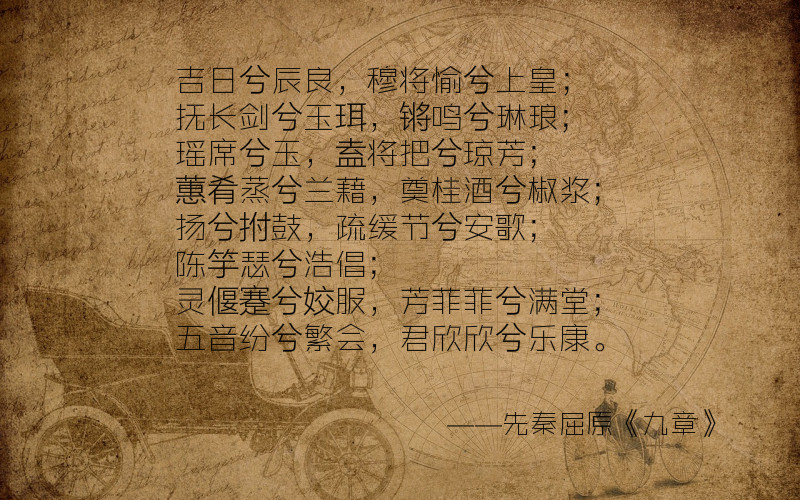 吉日兮辰良，穆将愉兮上皇；
抚长剑兮玉珥，锵鸣兮琳琅；
瑶席兮玉，盍将把兮琼芳；
蕙肴蒸兮兰藉，奠桂酒兮椒浆；
扬兮拊鼓，疏缓节兮安歌；
陈竽瑟兮浩倡；
灵偃蹇兮姣服，芳菲菲兮满堂；
五音纷兮繁会，君欣欣兮乐康。
——先秦屈原《九章》